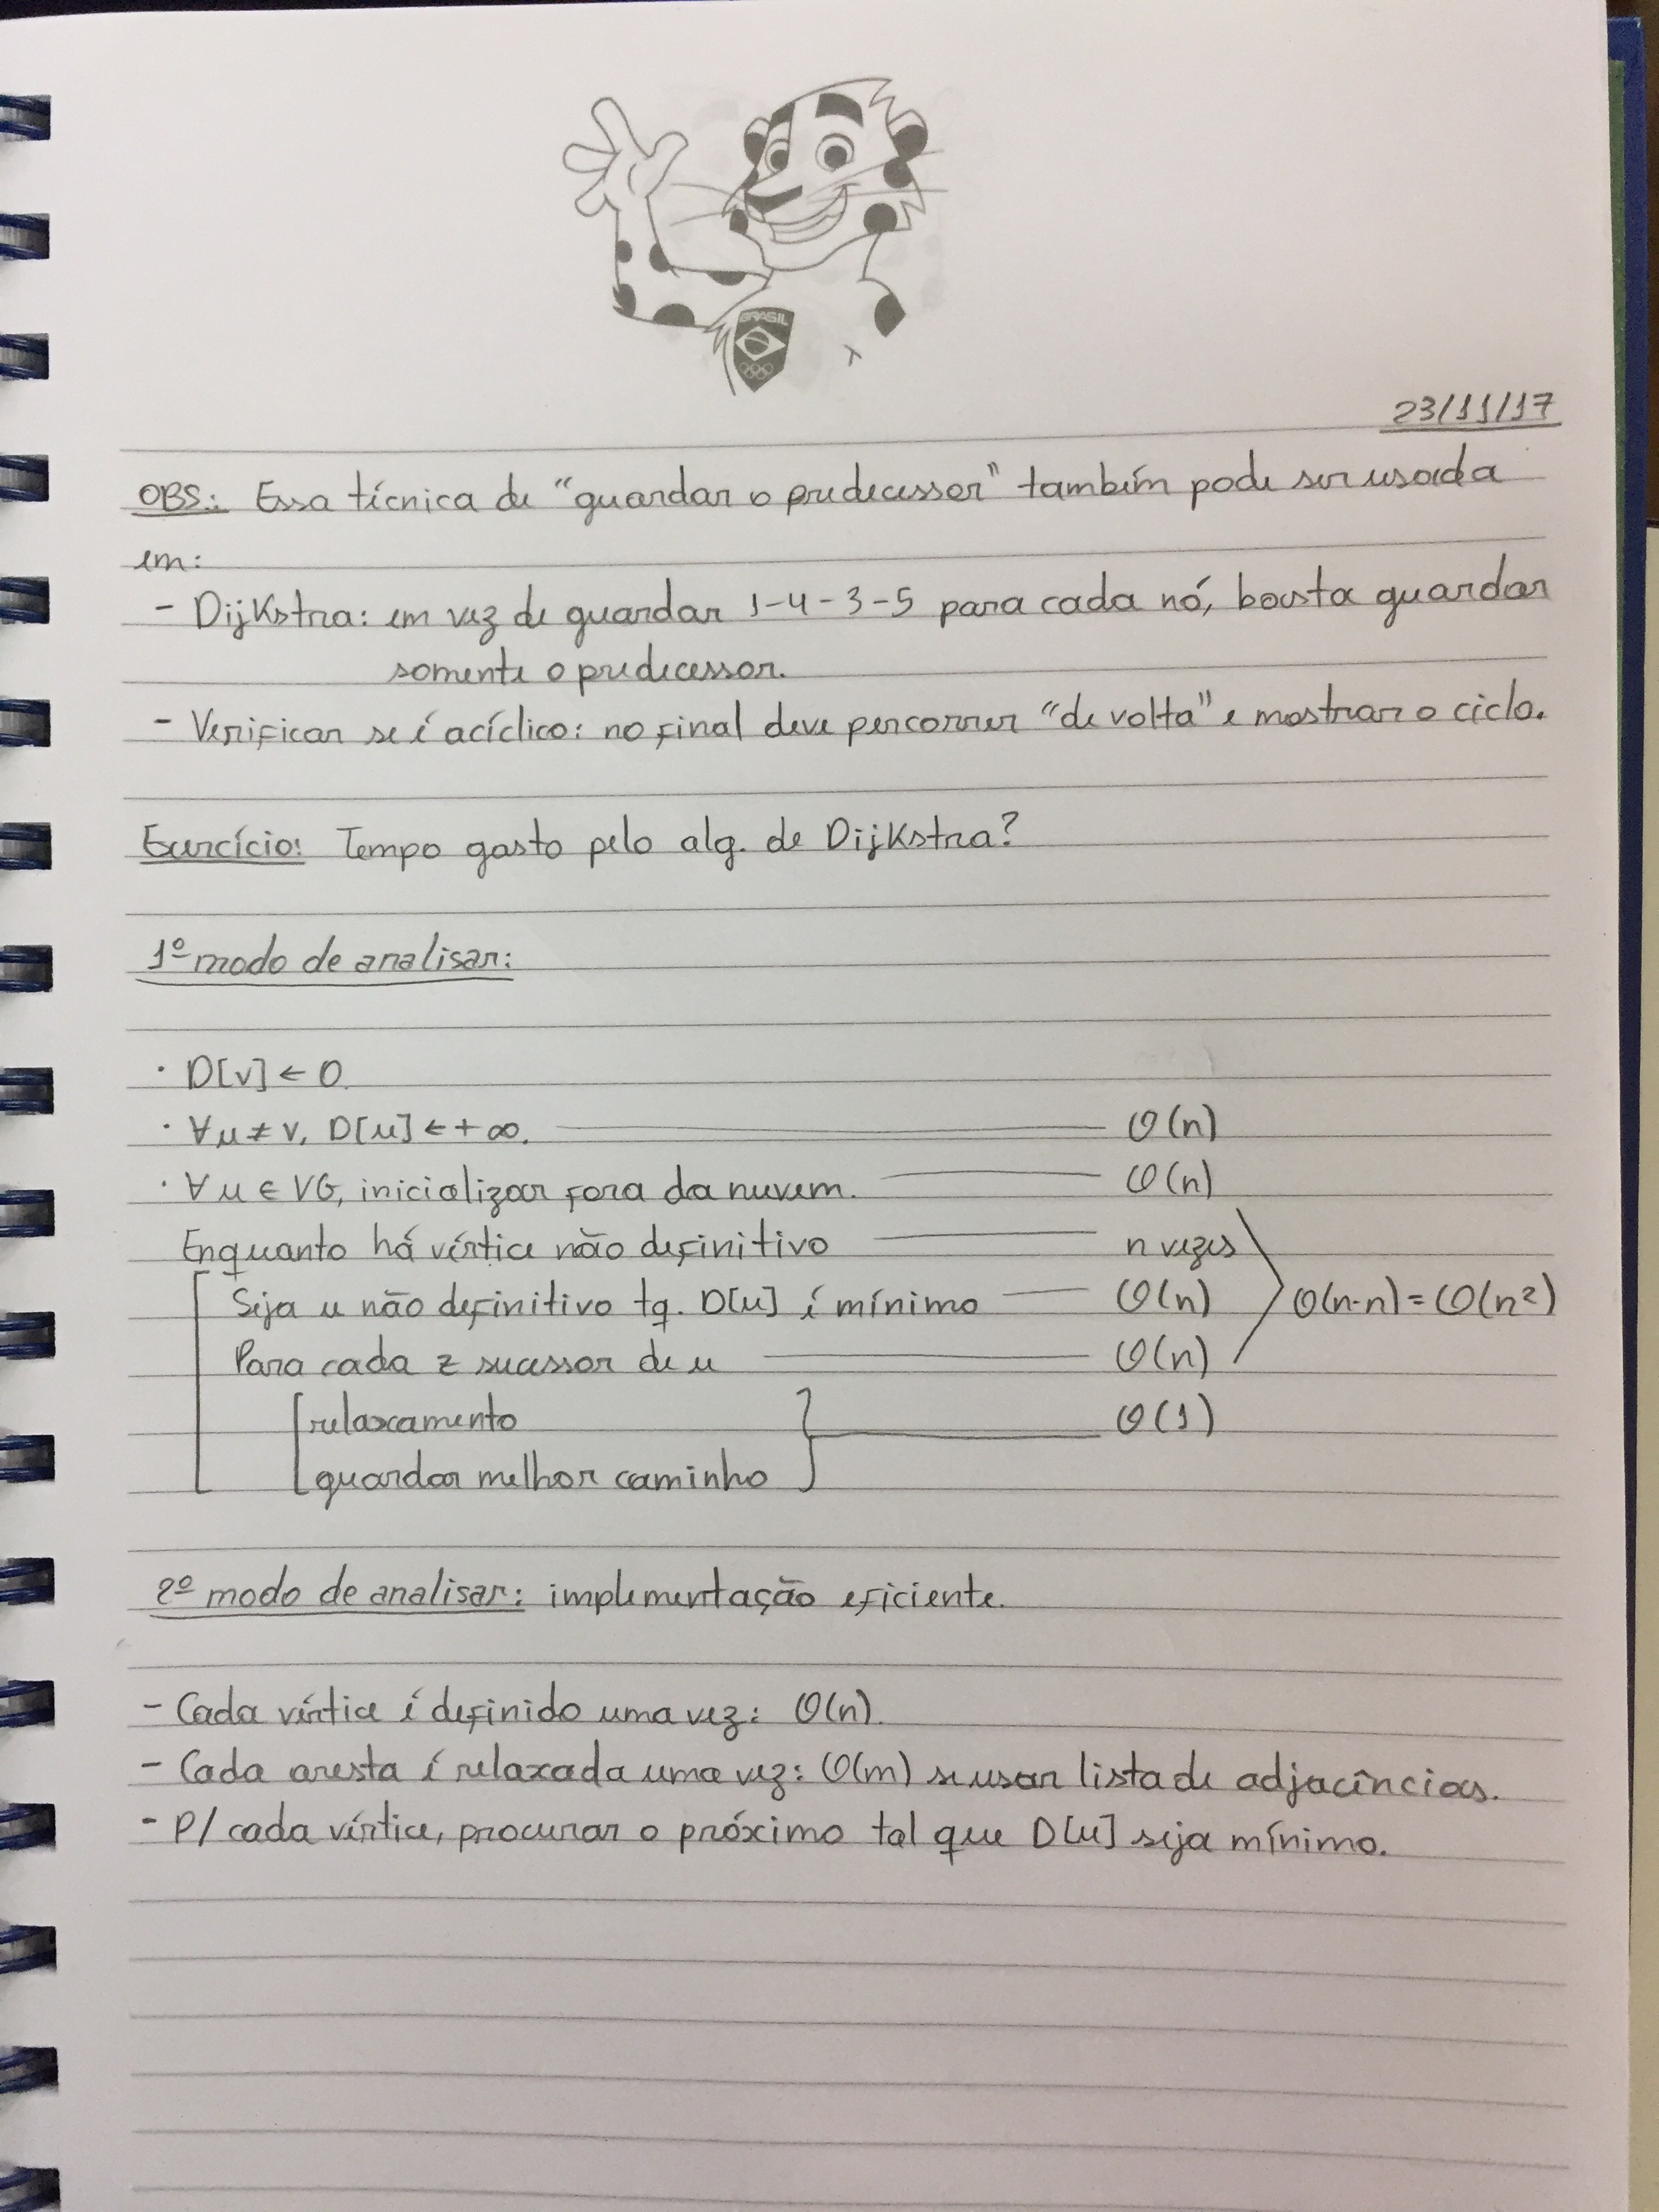 BRASIL
23/11/17
OBS.: Essa técnica de "guardar o predecessor" também pode ser usada
em:
- Dijkstra: em vez de guardar 1-4-3-5 para cada nó, basta guardar
somente o predecessor.
- Verificar se é acíclico: no final deve percorrer "de volta" e mostrar o ciclo.
Exercício: Tempo gasto pelo alg. de Dijkstra?
1º modo de analisar:
· D[v] ← 0.
· ∀u ≠ v, D[u] ← +∞. O(n)
· ∀u ∈ VG, inicializar fora da nuvem. O(n)
Enquanto há vértice não definitivo n vezes
Seja u não definitivo tq. D[u] é mínimo O(n) O(n·n) = O(n²)
Para cada z sucessor de u O(n)
relaxamento O(1)
guardar melhor caminho
2º modo de analisar: implementação eficiente.
- Cada vértice é definido uma vez: O(n).
- Cada aresta é relaxada uma vez: O(m) se usar lista de adjacências.
- P/ cada vértice, procurar o próximo tal que D[u] seja mínimo.